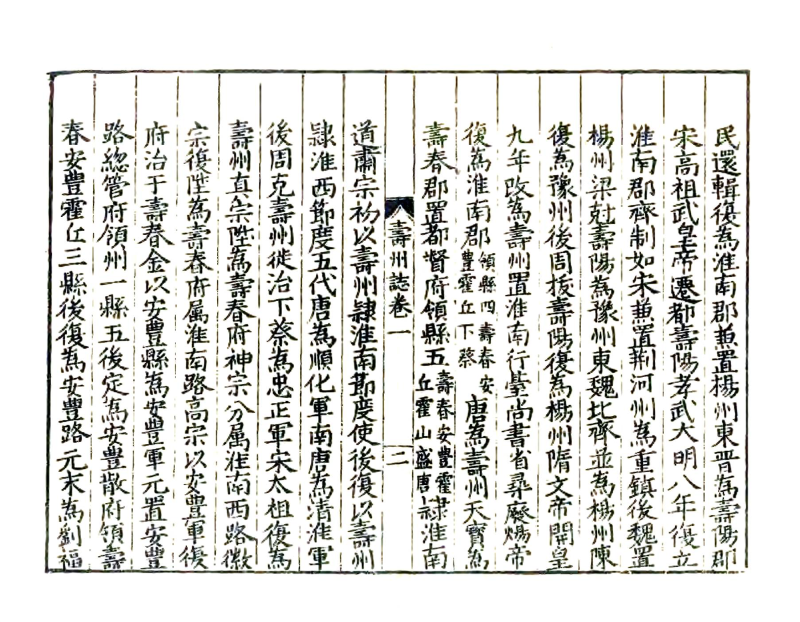 民還輯復為淮南郡兼置楊州東晋為壽陽郡
宋高祖武皇帝遷都壽陽孝武大明八年復立
淮南郡齊制如宋兼置荆河州為重鎮後魏置
楊州梁尅壽陽為豫州東魏北齊並為楊州陳
復為豫州後周拔壽陽復為楊州隋文帝開皇
九年改為壽州置淮南行臺尚書省尋廢煬帝
復為淮南郡領縣四壽春安豐霍丘下蔡唐為壽州天寶為
壽春郡置都督府領縣五壽春安豐霍丘霍山盛唐隸淮南
壽州誌卷一
二
道肅宗初以壽州隸淮南節度使後復以壽州
隸淮西節度五代唐為順化軍南唐為清淮軍
後周克壽州徙治下蔡為忠正軍宋太祖復為
壽州真宗陞為壽春府神宗分属淮南西路徽
宗復陞為壽春府属淮南路高宗以安豊軍復
府治于壽春金以安豊縣為安豊軍元置安豊
路總管府領州一縣五後定為安豊散府領壽
春安豊霍丘三縣後復為安豊路元末為劉福